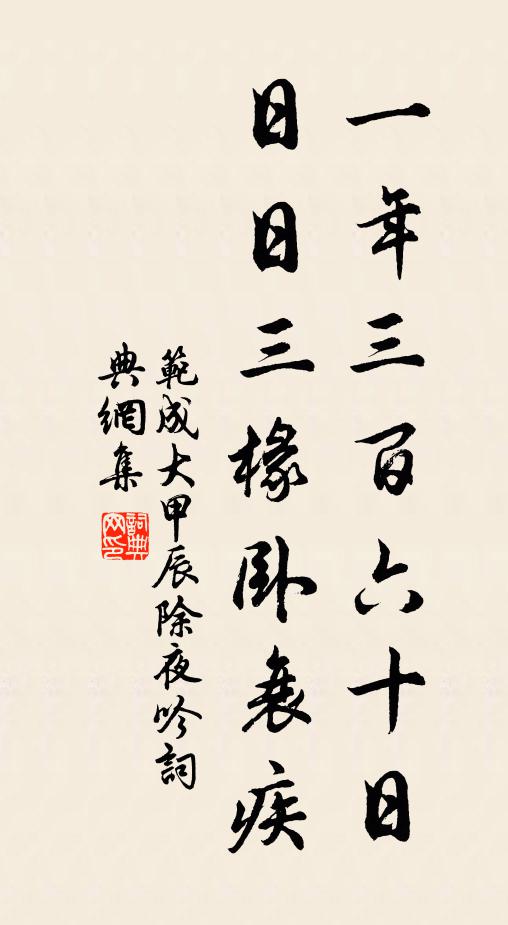 一年三百六十日
日日三椽卧衰疾
範成大甲辰除夜吟詞
典網集
詞典网印